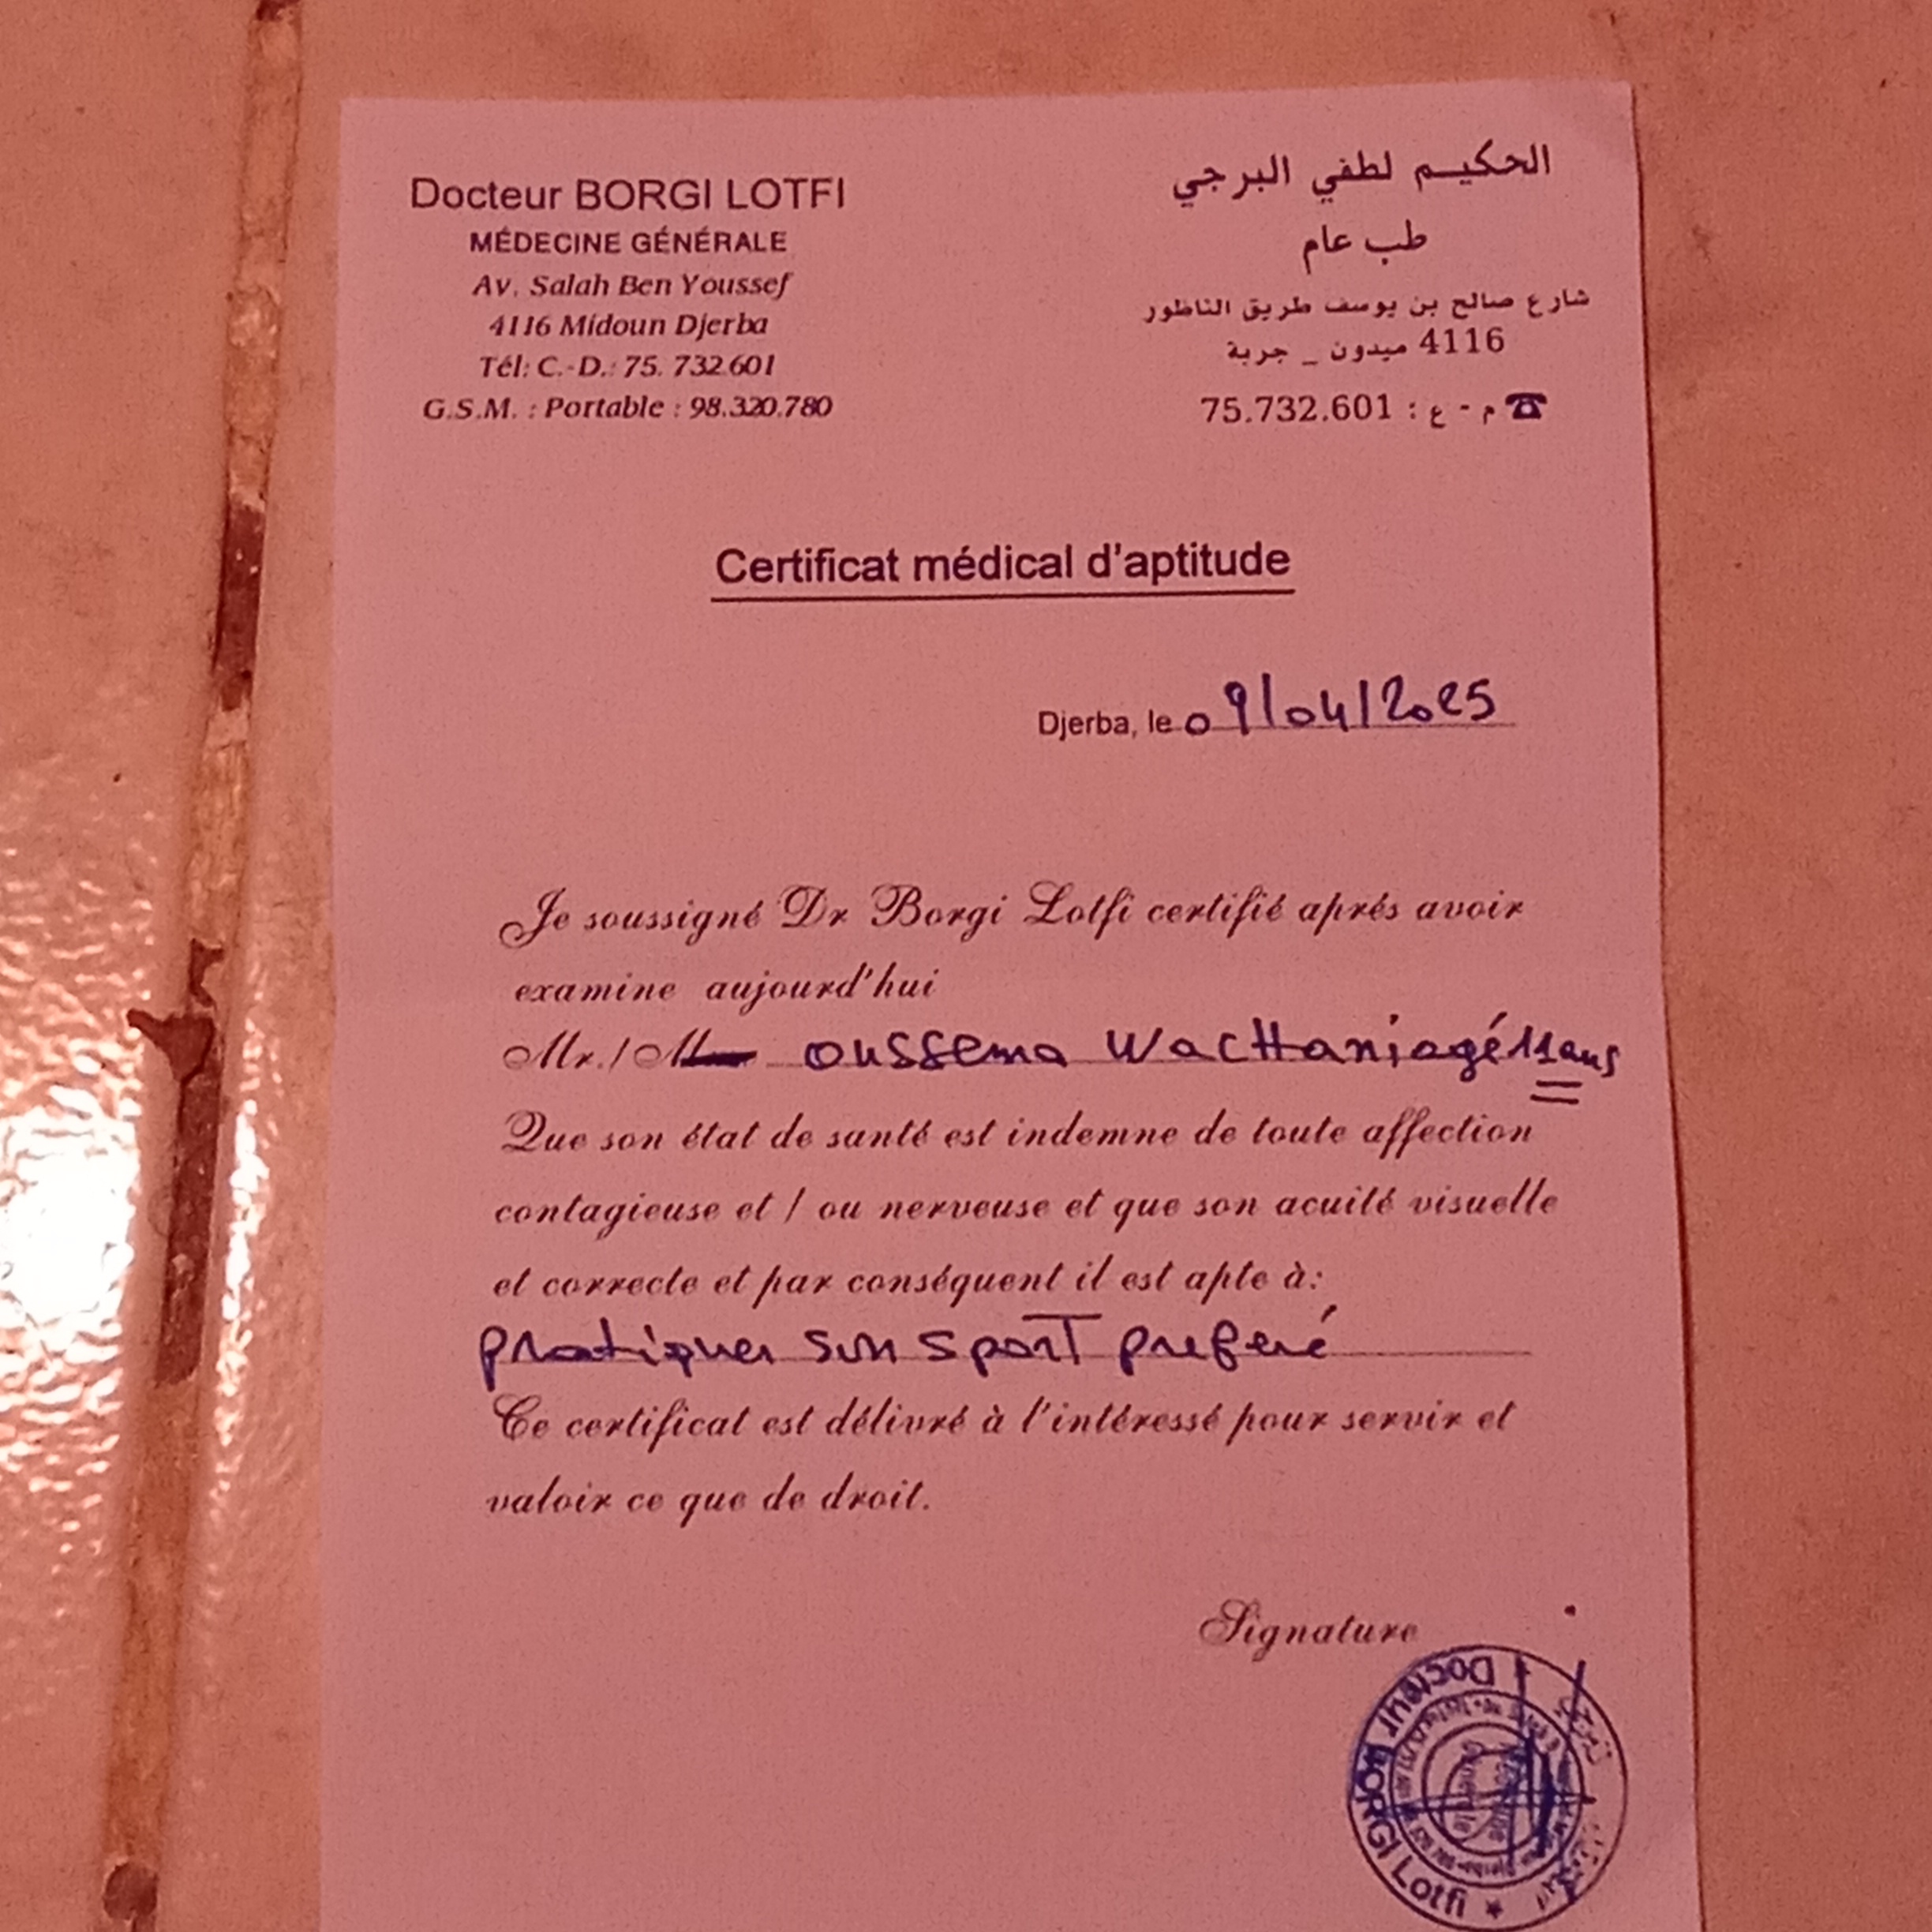 Docteur BORGI LOTFI
MÉDECINE GÉNÉRALE
Av. Salah Ben Youssef
4116 Midoun Djerba
Tél: C.-D.: 75. 732.601
G.S.M. : Portable : 98.320.780
الحكيم لطفي البرجي
طب عام
شارع صالح بن يوسف طريق الناظور
4116 ميدون _ جربة
☎ م - ع : 75.732.601
Certificat médical d'aptitude
Djerba, le 09/04/2025
Je soussigné Dr Borgi Lotfi certifié aprés avoir
examine aujourd'hui
Mr./M oussema wacHani agé 11 ans
Que son état de santé est indemne de toute affection
contagieuse et / ou nerveuse et que son acuité visuelle
et correcte et par conséquent il est apte à:
pratiquer son sport preferé
Ce certificat est délivré à l'intéressé pour servir et
valoir ce que de droit.
Signature
Docteur BORGI Lotfi
Médecine
Générale